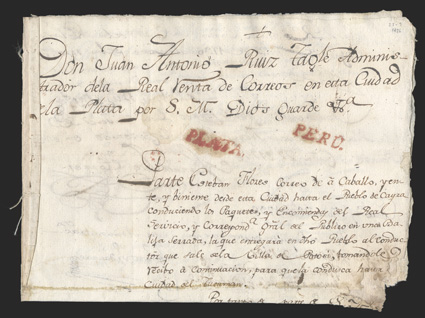 Don Juan Antonio Ruiz Tagle Adminis-
trador dela Real Renta de Correos en esta Ciudad
la Plata por S. M. Dios Guarde &ª.
PLATA. PERÚ.
Parte Esteban Flores Correo de á Caballo, yen-
te, y biniente desde esta Ciudad hasta el Pueblo de
Conduciendo los Paquetes, y Encomiendas del Real
Servicio, y Correspondª Gral del Publico en una Ba-
lija Serrada, la que entregará en dho Pueblo al Conduc-
tor que sale de la Villa de Potosi, tomandole
recibo á continuacion, para que la conduzca hasta
Ciudad del Tucuman.